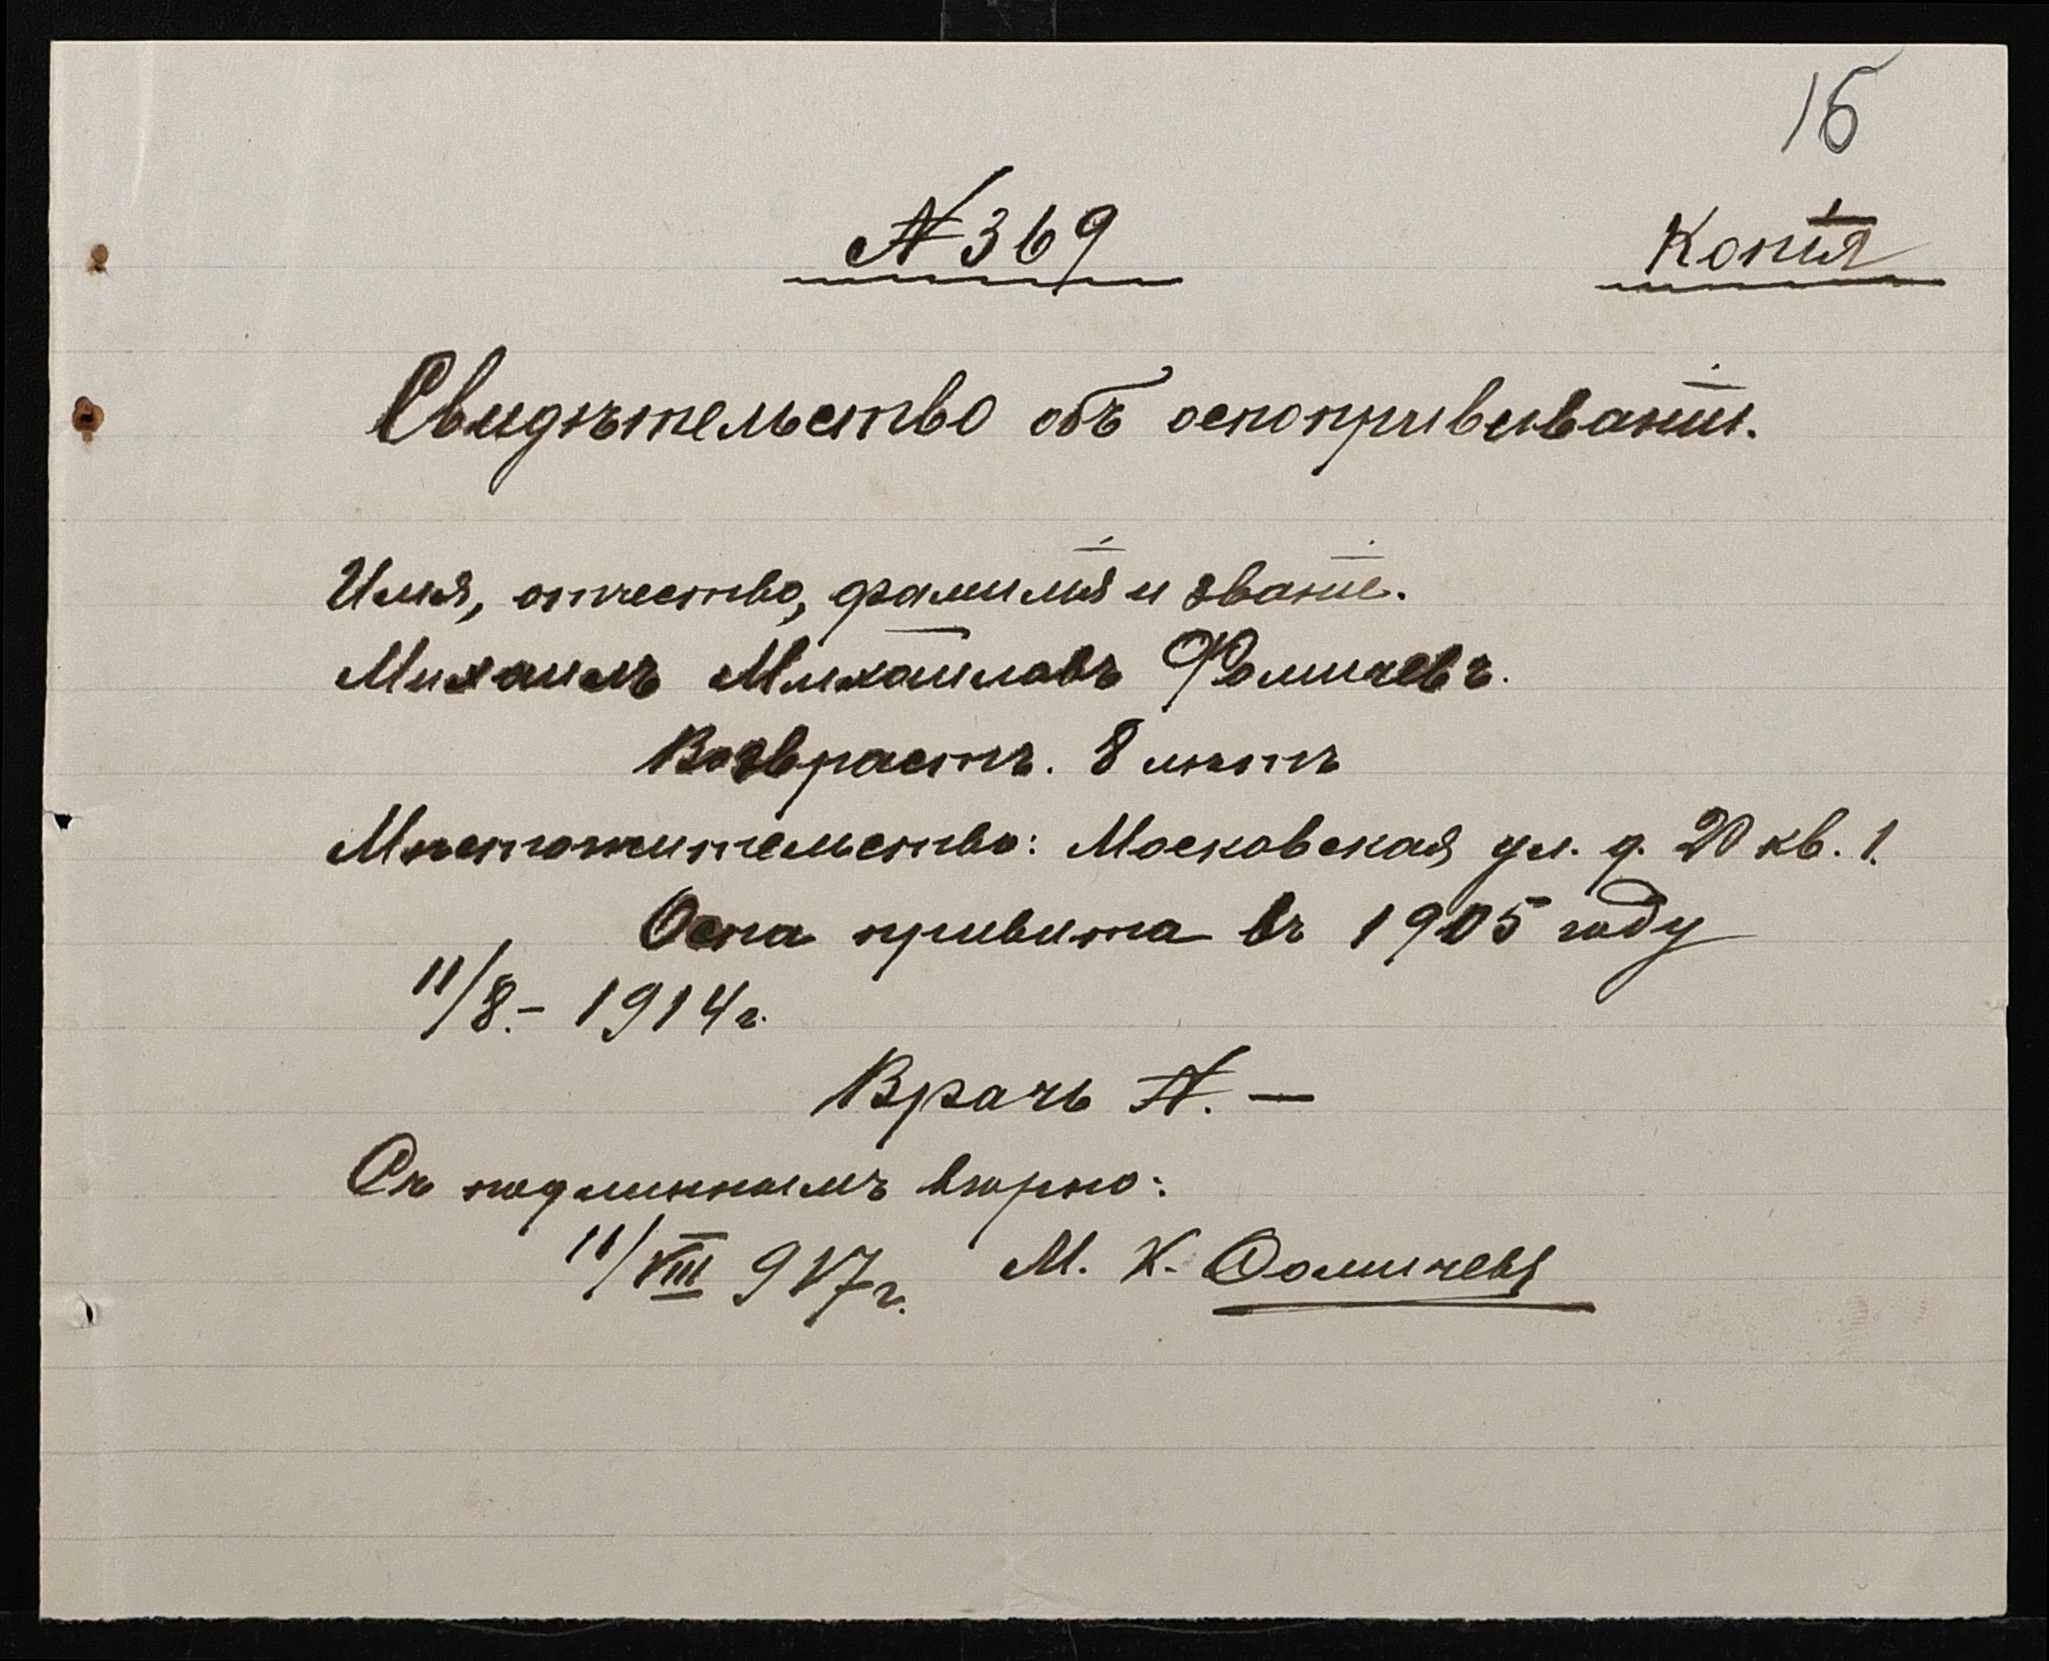 16
№ 369
Копія
Свидѣтельство объ оспопрививаніи.
Имя, отчество, фамилія и званіе.
Михаилъ Михаиловъ Фомичевъ.
Возврастъ. 8 лѣтъ
Мѣстожительство: Московская ул. д. 20 кв. 1.
Оспа привита въ 1905 году
11/8.- 1914 г.
Врачъ N. —
Съ подлиннымъ вѣрно:
11/VIII 917 г. М. К. Фомичевъ